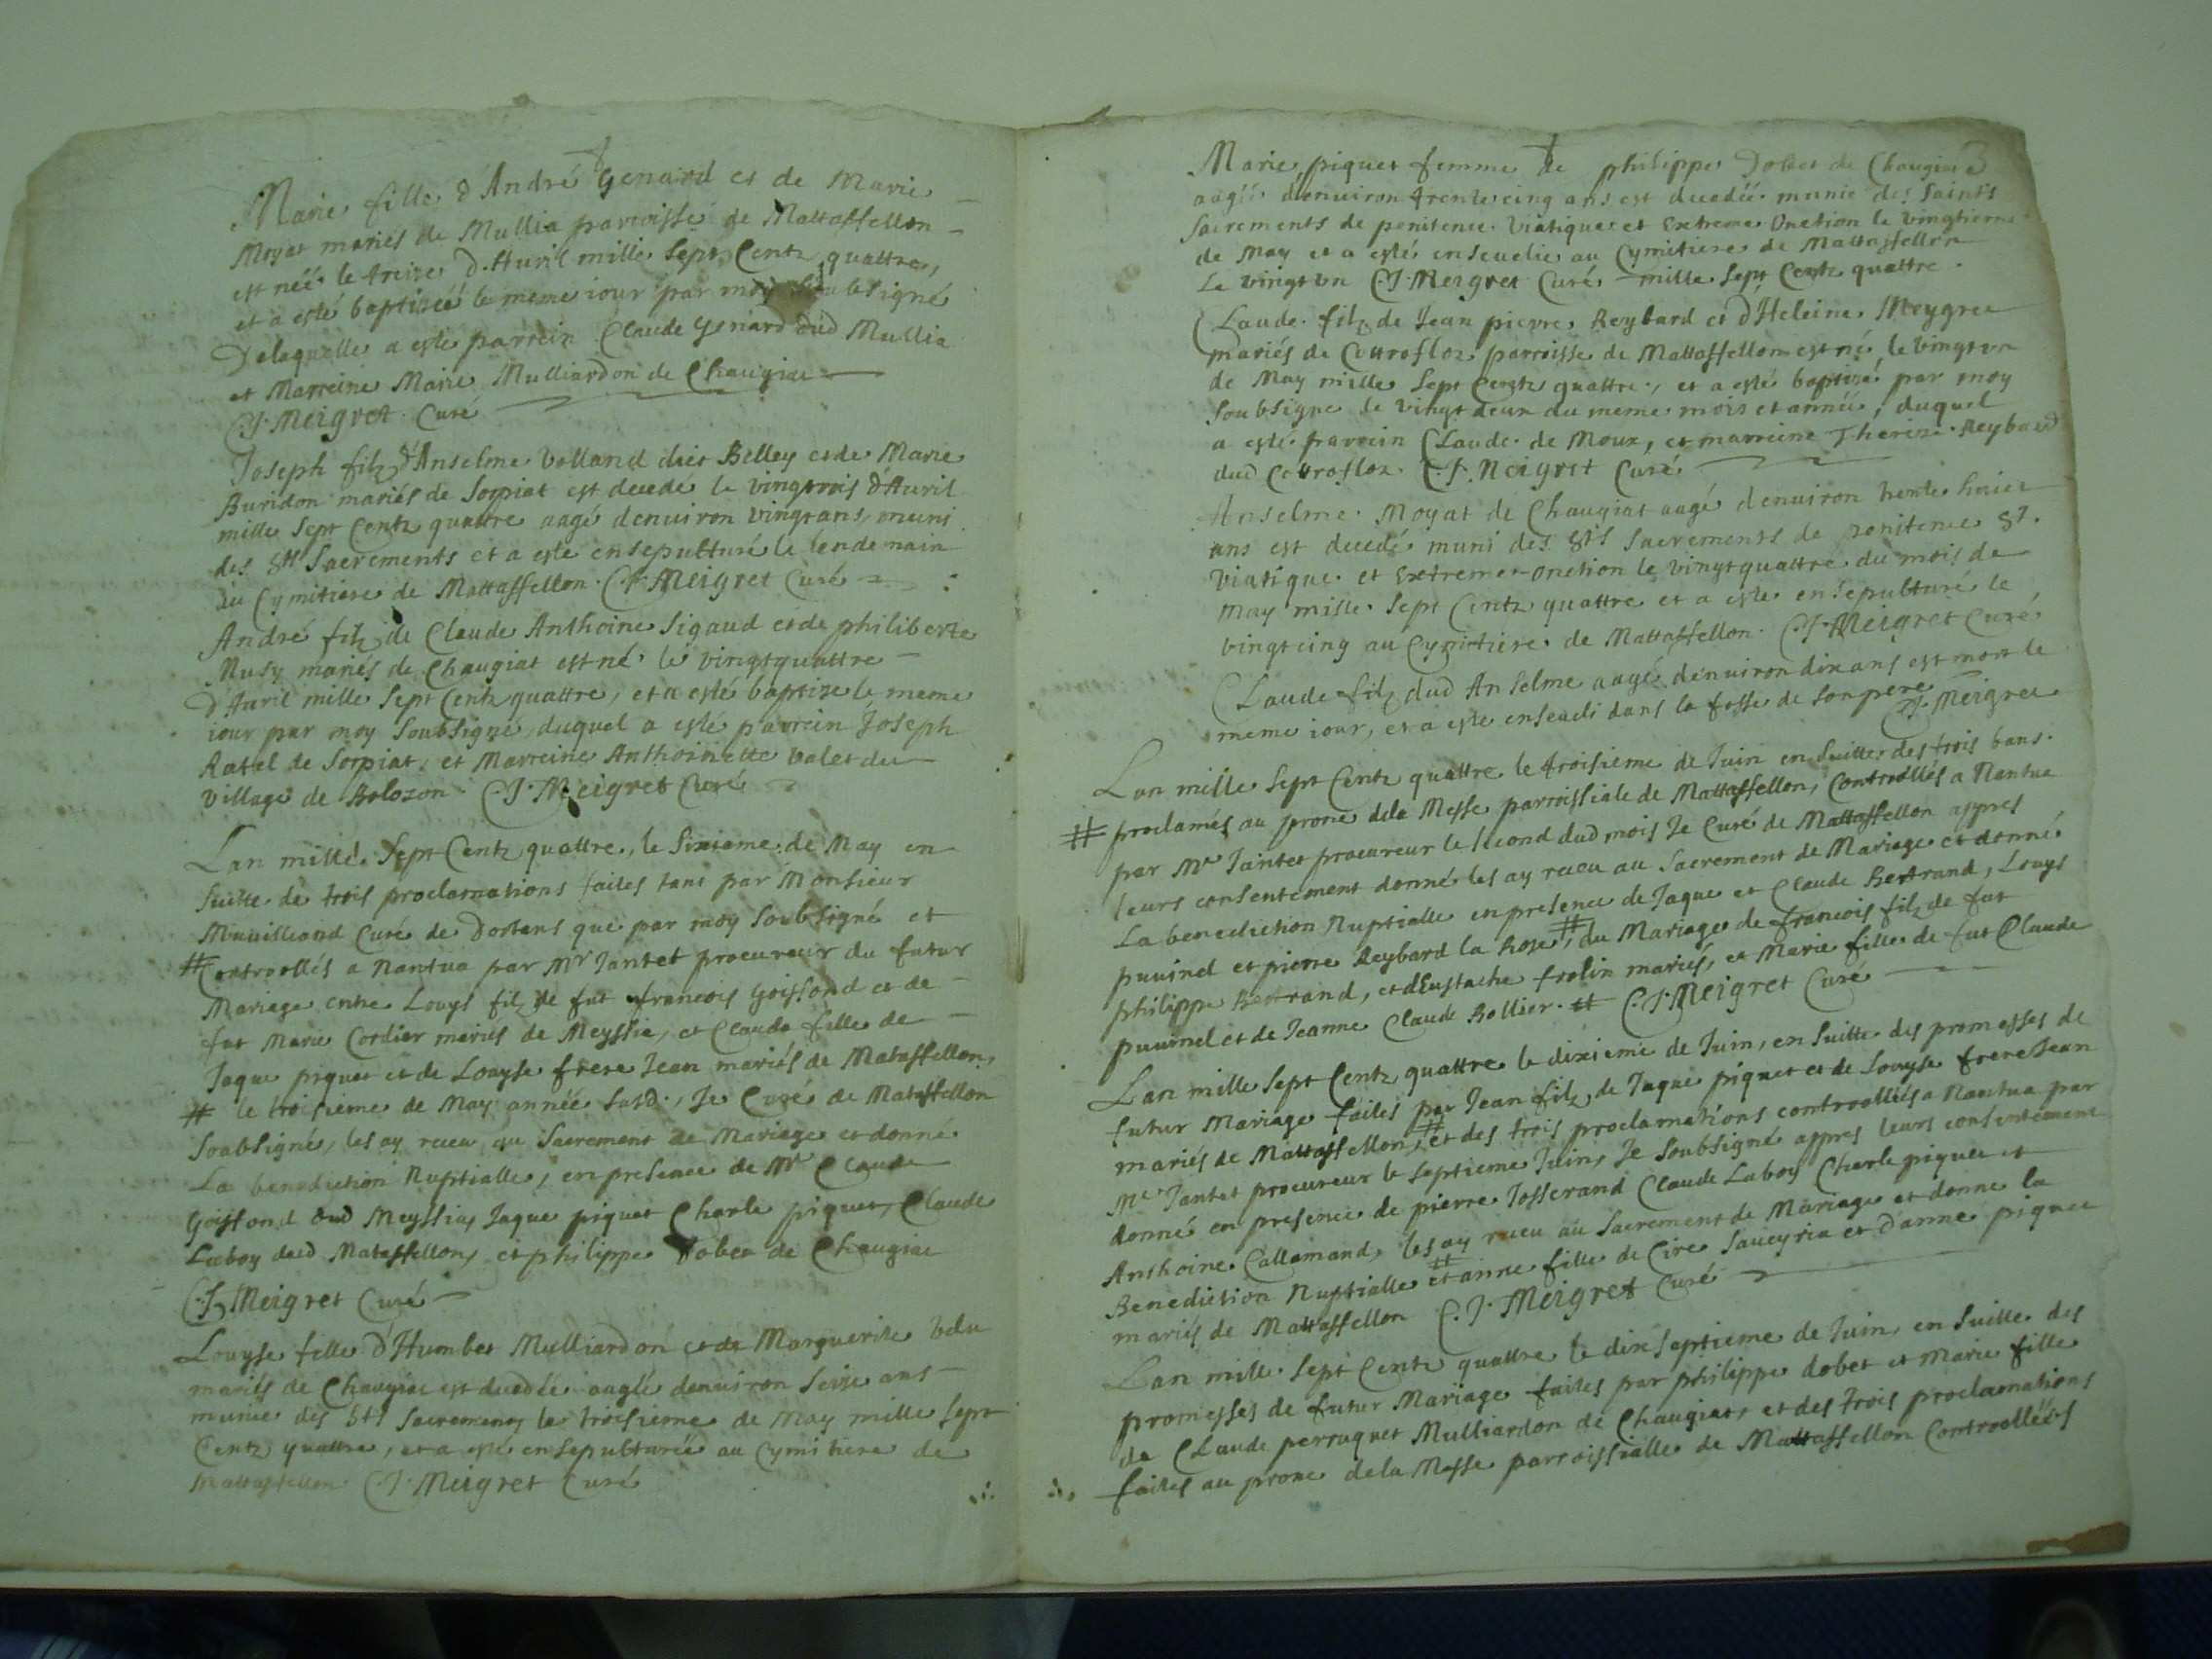 Marie fille d'André Genard et de Marie
Moyat mariés de Mullia parroisse de Mattaffellon
est néé le treize d'Auril mille Sept Centz quattre,
et a esté baptizéé le meme iour par moy soubsigné
Delaquelle a esté parrein Claude Genard dud Mullia
et Marreine Marie Mulliardon de Chaugiat
C.J. Meigret Curé
Joseph filz d'Anselme Volland dict Belley et de Marie
Buridon mariés de Sorpiat est decedé le vingtrois d'Auril
mille Sept Centz quattre aagé denuiron vingt ans, muni
des Sts Sacrements et a esté ensepulturé le lendemain
au Cymitiere de Mattaffellon. C.J. Meigret Curé
André filz de Claude Anthoine Sigaud et de philiberte
Nusy mariés de Chaugiat est né le vingtquattre
d'Auril mille Sept Centz quattre, et a esté baptize le meme
iour par moy Soubsigné, duquel a esté parrein Joseph
Ratel de Sorpiat, et Marreine Anthoinette Valet du
village de Bolozon C.J. Meigret Curé
Lan mille Sept Centz quattre, le Sixieme de May en
Suitte de trois proclamations faites tant par Monsieur
Curé de Dortans que par moy Soubsigné et
# Controollés a Nantua par Mr Jantet procureur du futur
Mariage entre Louys filz de fut francois Goiffond et de
fut Marie Cordier mariés de Meyssia, et Claude fille de
Jaque piquet et de Louyse frere Jean mariés de Mataffellon,
# le troisieme de May année Susd., Je Curé de Mataffellon
Soubsigné, les ay receu au Sacrement de Mariage et donné
La benediction Nuptialle, en presence de Mr Claude
Goiffond dud Meyssia, Jaque piquet Charle piquet, Claude
Laboy dud Mataffellon, et philippe Dobet de Chaugiat
C.J. Meigret Curé
Louyse fille d'Humbet Mulliardon et de Marguerite Velu
mariés de Chaugiat est decedée aagée denuiron seize ans
munie des Sts Sacrements le troisieme de May mille sept
Centz quattre, et a esté ensepulturée au Cymitiere de
Mattaffellon C.J. Meigret Curé
Marie piquet femme de philippe Dobet de Chaugiat 3
aagéé denuiron trente cinq ans est decedéé munie des Saints
Sacrements de penitence Viatique et Extreme Onction le vingtieme
de May et a esté enseuelie au Cymitiere de Mattaffellon
Le vingt vn C.J. Meigret Curé mille Sept Centz quattre.
Claude filz de Jean pierre Reybard et d'Heleine Meygret
mariés de Cottrofloz parroisse de Mattaffellon est né le vingt vn
de May mille Sept Centz quattre, et a esté baptizé par moy
Soubsigne le vingt deux du meme mois et année, duquel
a esté parrein Claude de Moux, et marreine Therize Reybard
dud Cottrofloz. C.J. Meigret Curé
Anselme Moyat de Chaugiat aagé denuiron trente huict
ans est decedé muni des Sts Sacrements de penitence St.
Viatique et Extreme-Onction le vingtquattre du mois de
May mille Sept Centz quattre et a esté ensepulturé le
vingtcinq au Cymitiere de Mattaffellon. C.J. Meigret Curé
Claude filz dud Anselme aagé denuiron dix ans est mort le
meme iour, et a esté enseueli dans la fosse de son pere C.J. Meigret
Lan mille Sept Centz quattre le troisieme de Juin en Suitte des trois bans
# proclamés au prone dela Messe parroissiale de Mattaffellon, Controollés a Nantua
par Mr Jantet procureur le second dud mois Je Curé de Mattaffellon appres
leurs consentement donné les ay receu au Sacrement de Mariage et donné
La benediction Nuptialle en presence de Jaque et Claude Bertrand, Louys
puuinel et pierre Reybard la Rose, # du Mariage de francois filz de fut
philippe Bertrand, et d'Eustache frolin mariés, et Marie fille de fut Claude
puuinel et de Jeanne Claude Bollier. # C.J. Meigret Curé
Lan mille Sept Centz quattre le dixieme de Juin, en Suitte des promesses de
futur Mariage faites par Jean filz de Jaque piquet et de Louyse frere Jean
mariés de Mattaffellon, # et des trois proclamations controollées a Nantua par
Mr Jantet procureur le septieme Juin, Je Soubsigné appres leurs consentement
donné en presence de pierre Josserand Claude Laboy Charle piquet et
Anthoine Callamand, les ay receu au Sacrement de Mariage et donne la
Benediction Nuptialle # et anne fille de Cire Saueyria et d'anne piquet
mariés de Mattaffellon C.J. Meigret Curé
Lan mille Sept Centz quattre le dix septieme de Juin, en Suitte des
promesses de futur Mariage faites par philippe dobet et Marie fille
de Claude perruquet Mulliardon de Chaugiat, et des trois proclamations
faites au prone dela Messe parroissialle de Mattaffellon Controolléés